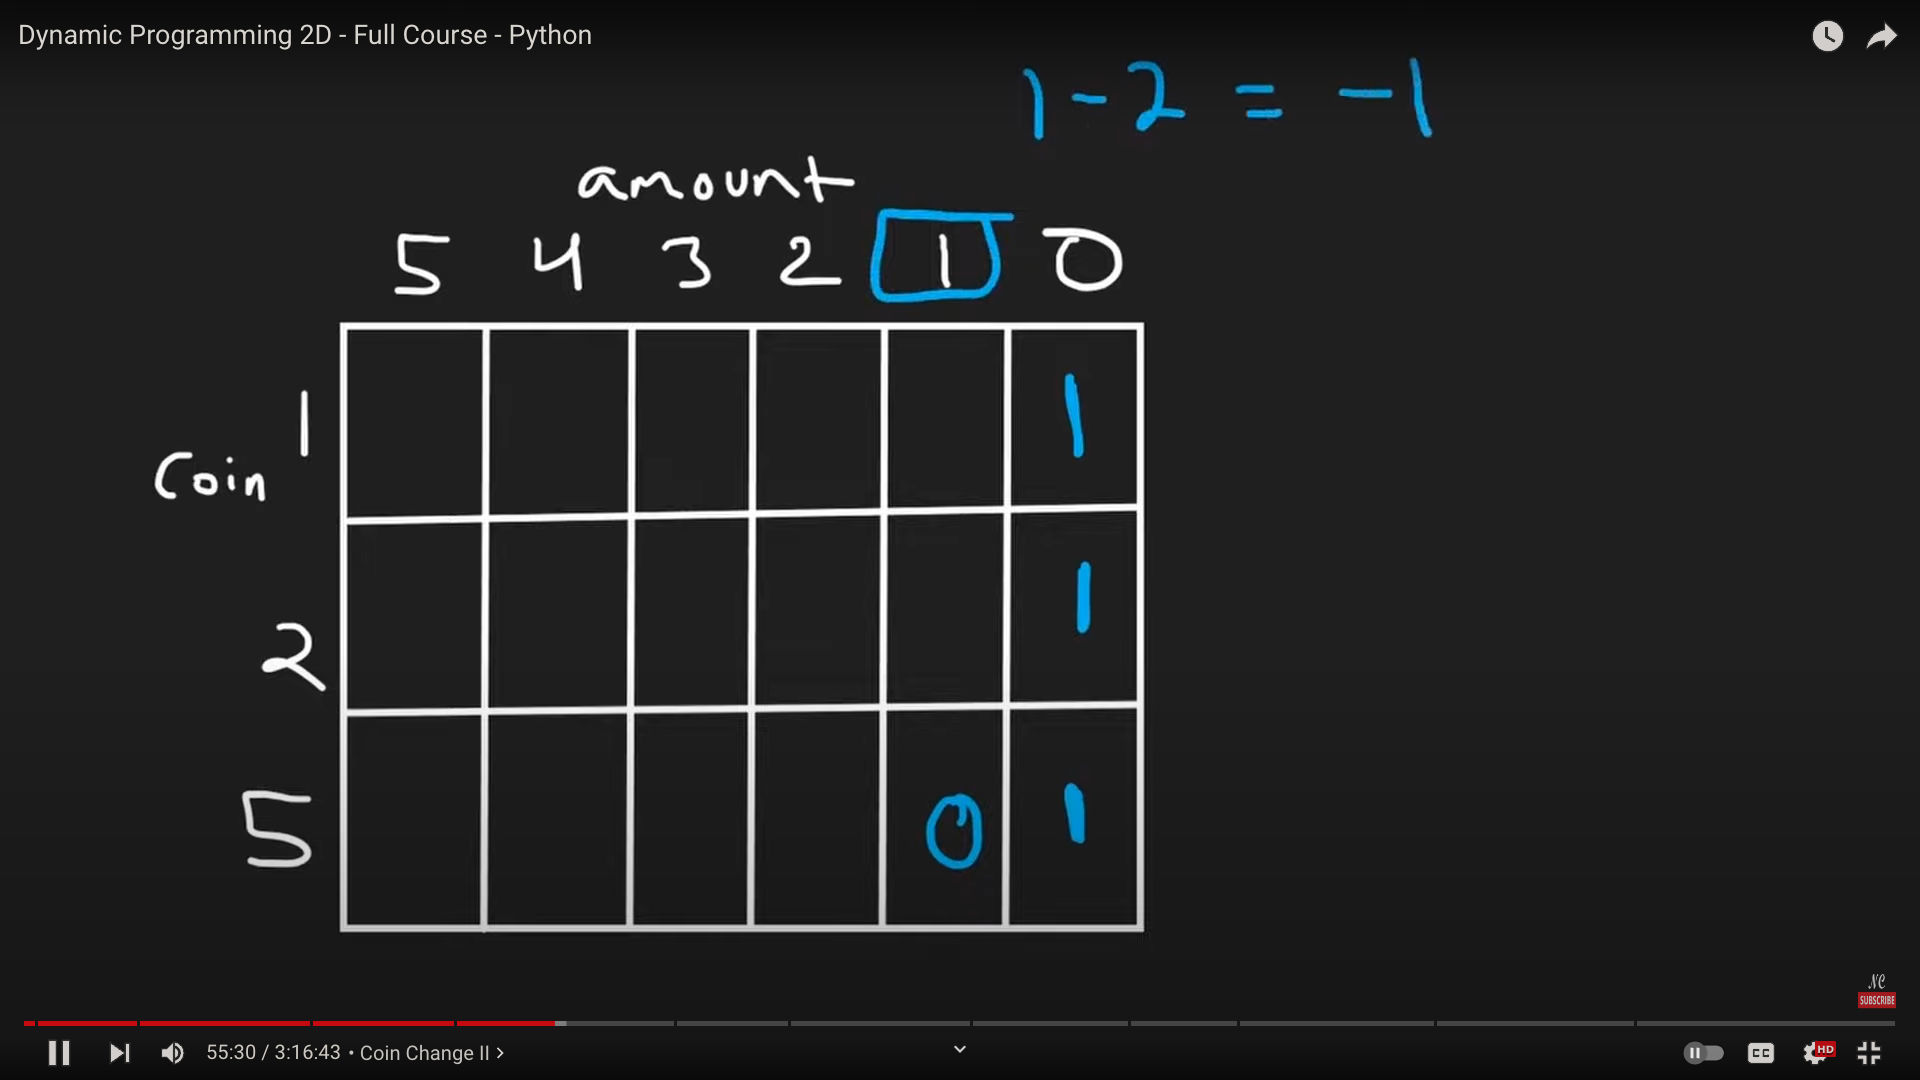 Dynamic Programming 2D - Full Course - Python
1 - 2 = -1
amount
5 4 3 2 1 0
1 1
Coin
2 1
5 0 1
NC
SUBSCRIBE
55:30 / 3:16:43 • Coin Change II >
CC HD